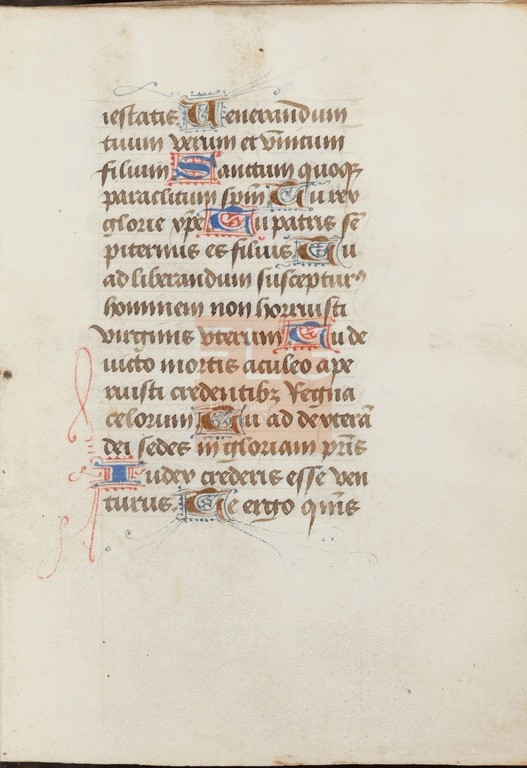 iestatis Venerandum
tuum verum et vnicum
filium Sanctum quoqꝫ
paraclitum spm̄ Tu rex
glorie xp̄e Tu patris sē
piternus es filius Tu
ad liberandum suscepturꝰ
hominem non horruisti
virginis vterum Tu de
uicto mortis aculeo ape
ruisti credentibꝫ regna
celorum Tu ad dexterā
dei sedes in gloriam pr̄is
Iudex crederis esse ven
turus. Te ergo qm̄s